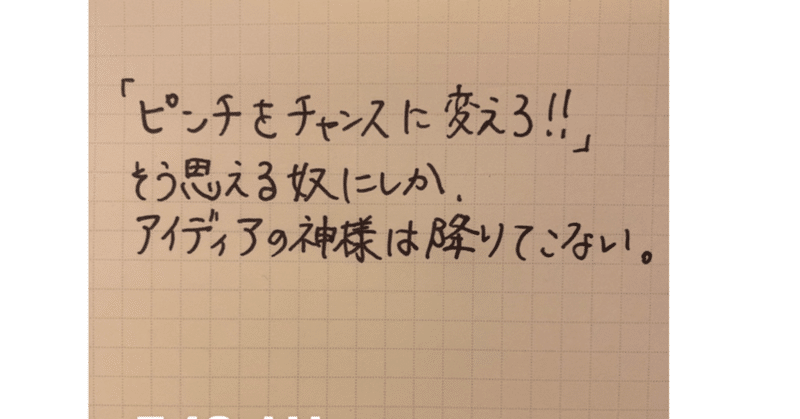 「ピンチをチャンスに変えろ!!」
そう思える奴にしか、
アイディアの神様は降りてこない。